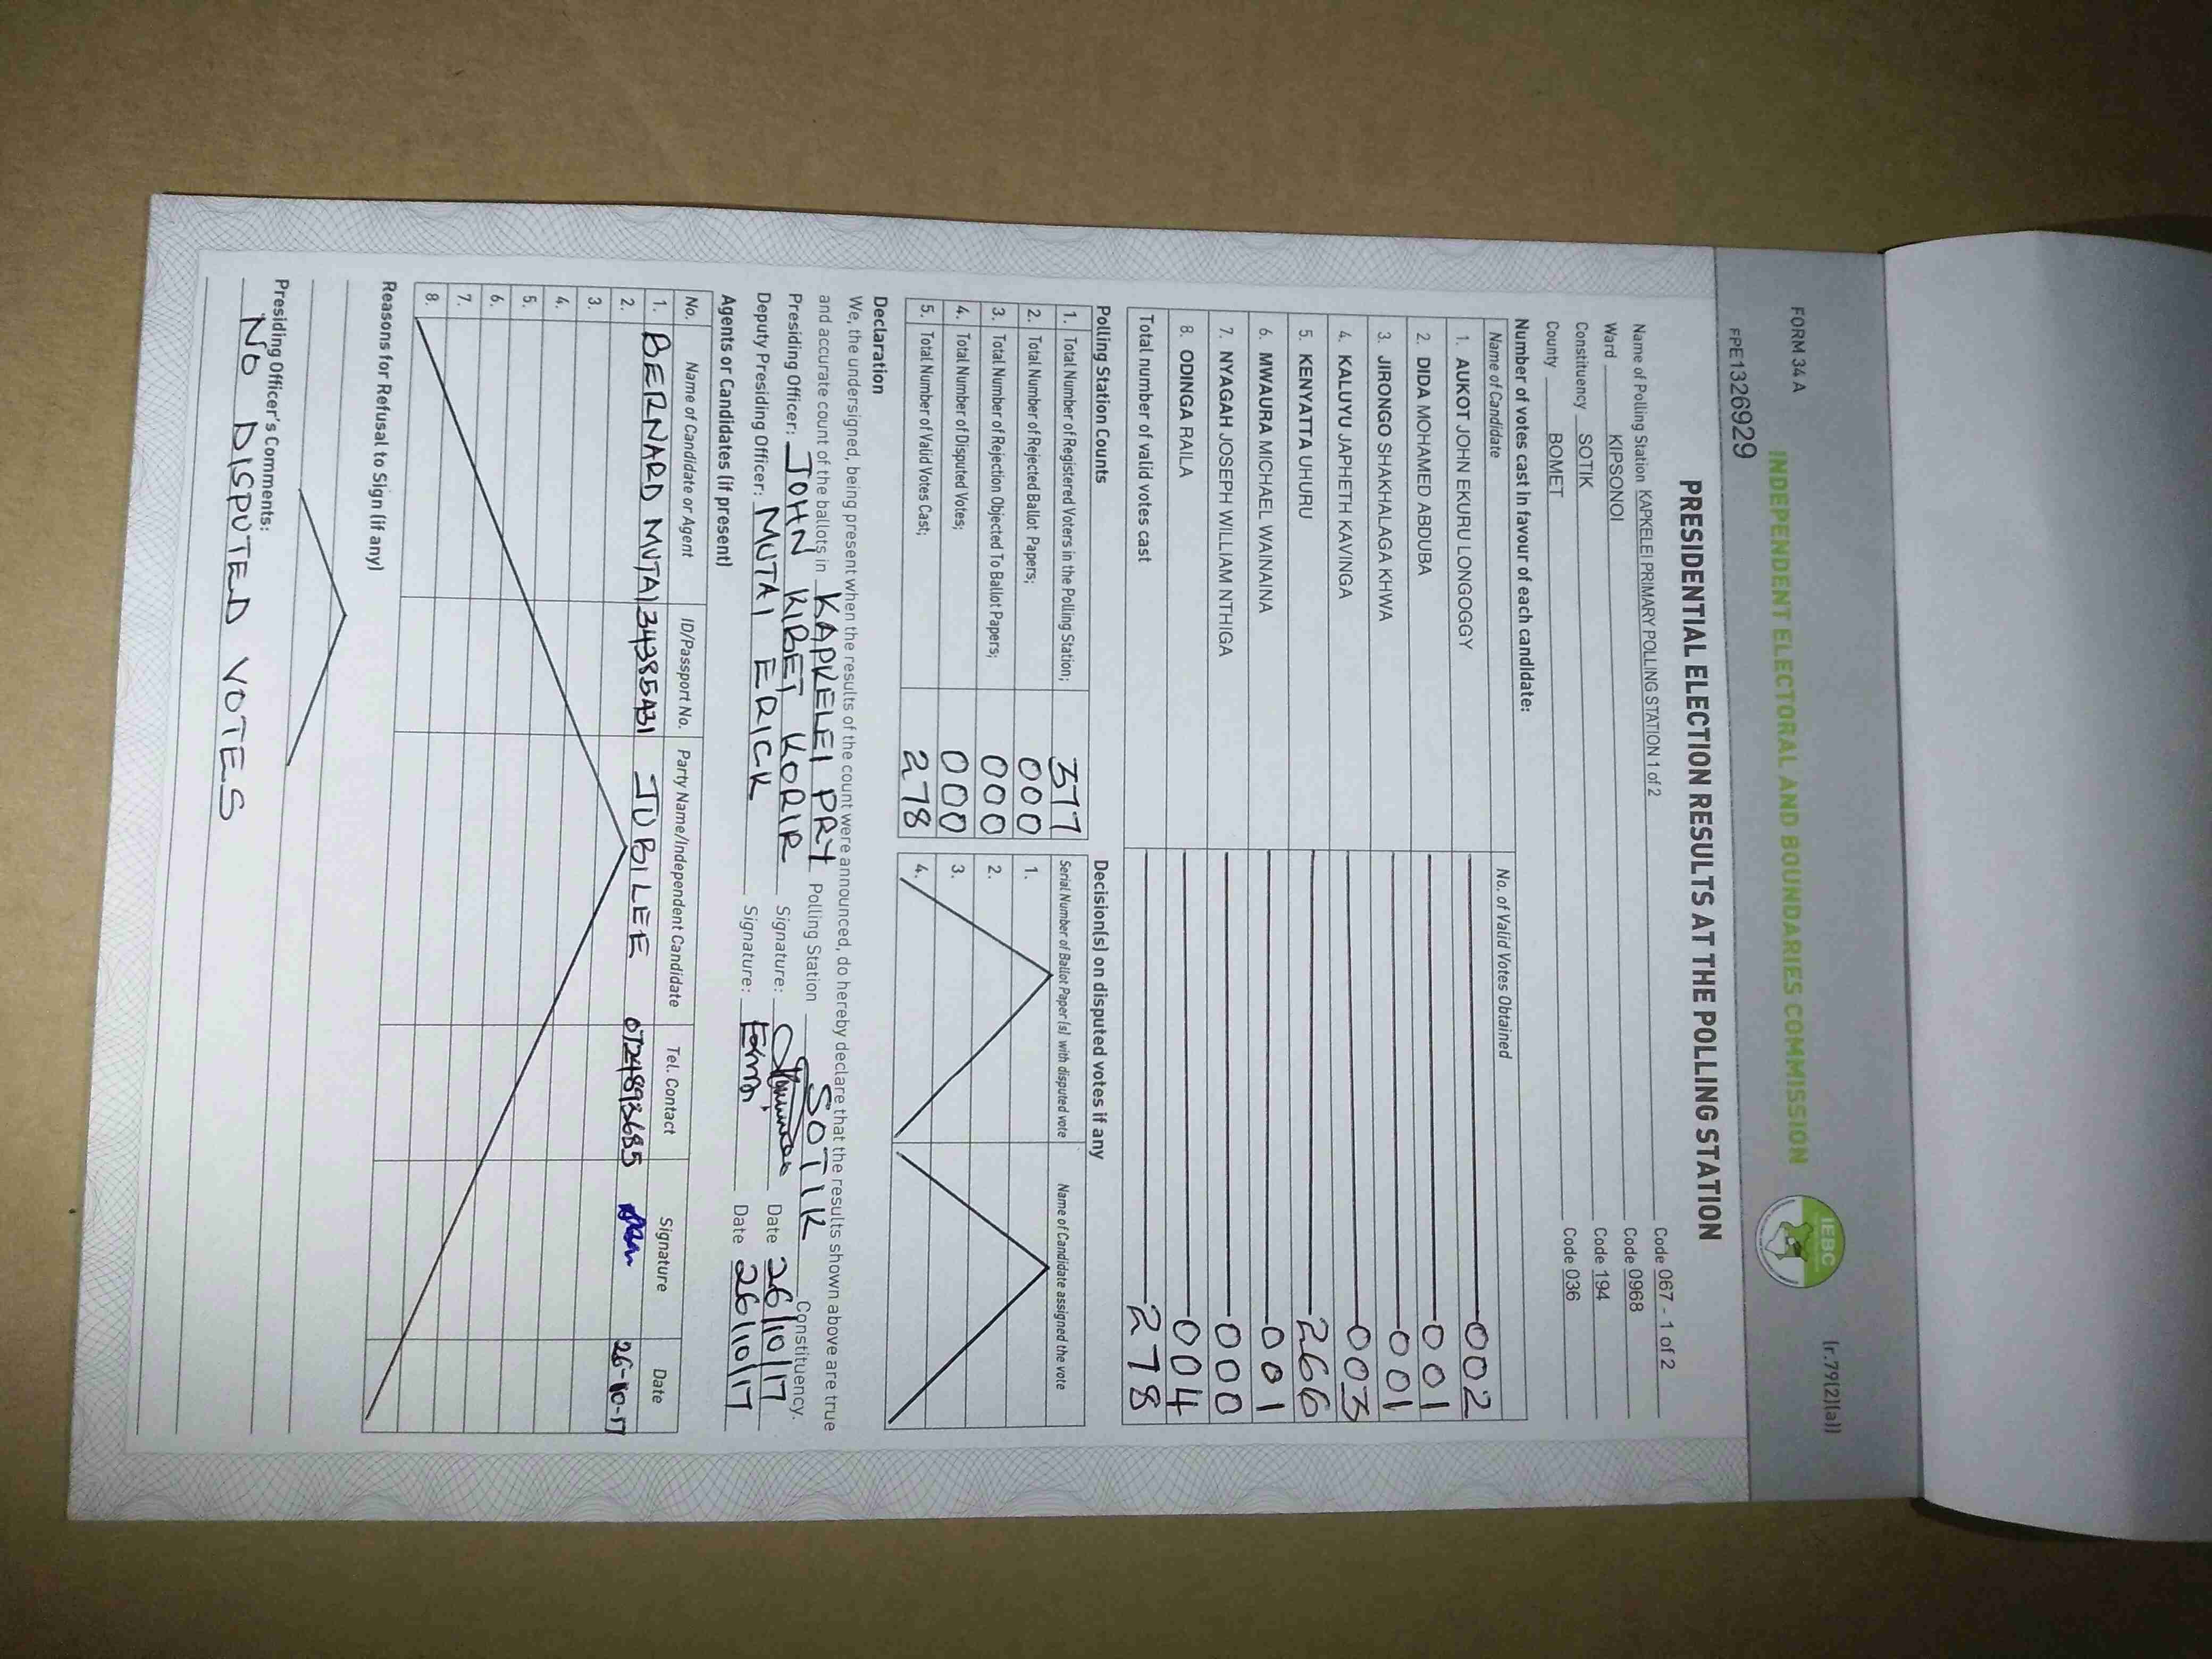 FORM 34 A
(r.79(2)(a))
INDEPENDENT ELECTORAL AND BOUNDARIES COMMISSION
IEBC
FPE1326929
PRESIDENTIAL ELECTION RESULTS AT THE POLLING STATION
Name of Polling Station KAPKELEI PRIMARY POLLING STATION 1 of 2 Code 067 - 1 of 2
Ward KIPSONOI Code 0968
Constituency SOTIK Code 194
County BOMET Code 036
Number of votes cast in favour of each candidate:
Name of Candidate No. of Valid Votes Obtained
1. AUKOT JOHN EKURU LONGOGGY 002
2. DIDA MOHAMED ABDUBA 001
3. JIRONGO SHAKHALAGA KHWA 001
4. KALUYU JAPHETH KAVINGA 003
5. KENYATTA UHURU 266
6. MWAURA MICHAEL WAINAINA 001
7. NYAGAH JOSEPH WILLIAM NTHIGA 000
8. ODINGA RAILA 004
Total number of valid votes cast 278
Polling Station Counts Decision(s) on disputed votes if any
1. Total Number of Registered Voters in the Polling Station; 377 Serial Number of Ballot Paper (s) with disputed vote Name of Candidate assigned the vote
2. Total Number of Rejected Ballot Papers; 000 1.
3. Total Number of Rejection Objected To Ballot Papers; 000 2.
4. Total Number of Disputed Votes; 000 3.
5. Total Number of Valid Votes Cast; 278 4.
Declaration
We, the undersigned, being present when the results of the count were announced, do hereby declare that the results shown above are true
and accurate count of the ballots in KAPKELEI PRY Polling Station SOTIK Constituency.
Presiding Officer: JOHN KIBET KORIR Signature: Date 26/10/17
Deputy Presiding Officer: MUTAI ERICK Signature: Date 26/10/17
Agents or Candidates (if present)
No. Name of Candidate or Agent ID/Passport No. Party Name/Independent Candidate Tel. Contact Signature Date
1. BERNARD MUTAI JUBILEE 0724893685 26-10-17
2.
3.
4.
5.
6.
7.
8.
Reasons for Refusal to Sign (if any)
Presiding Officer's Comments:
NO DISPUTED VOTES